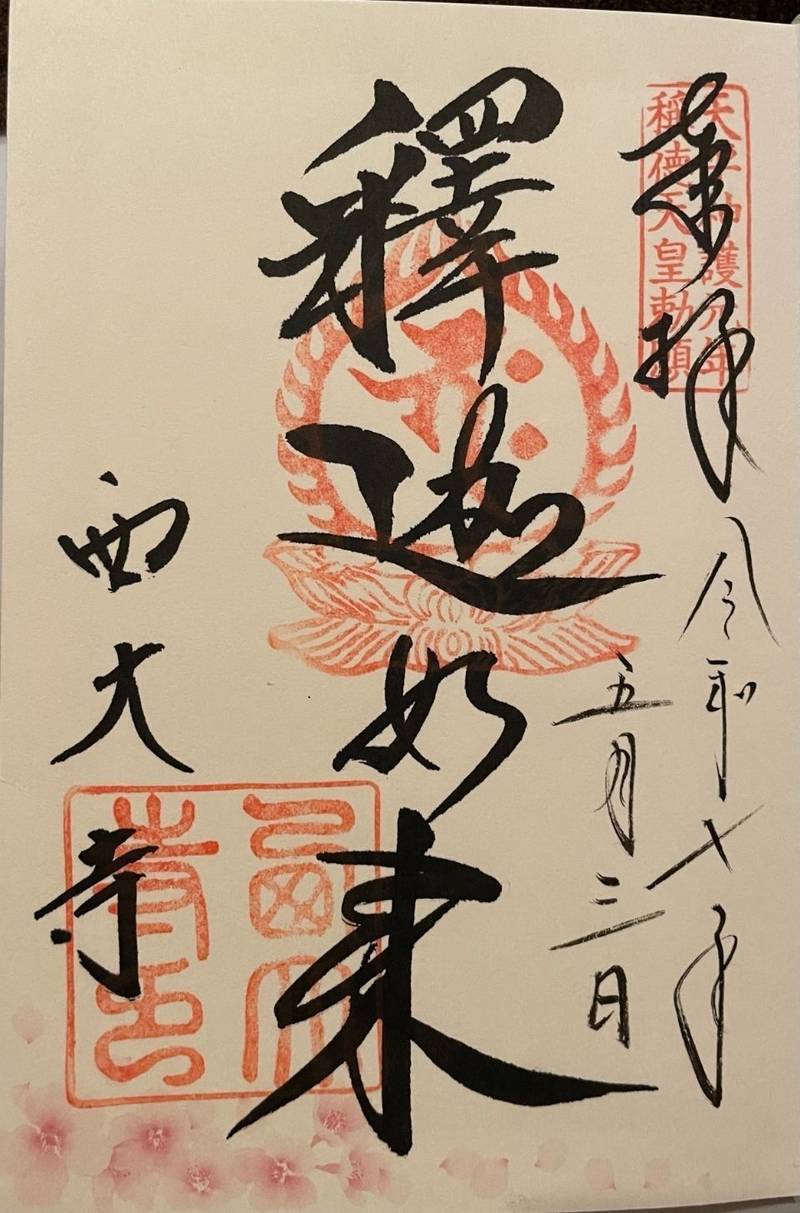 奉拝
天平神護元年
稱徳天皇勅願
令和七年
五月三日
釋迦如来
西大寺
西大
寺印